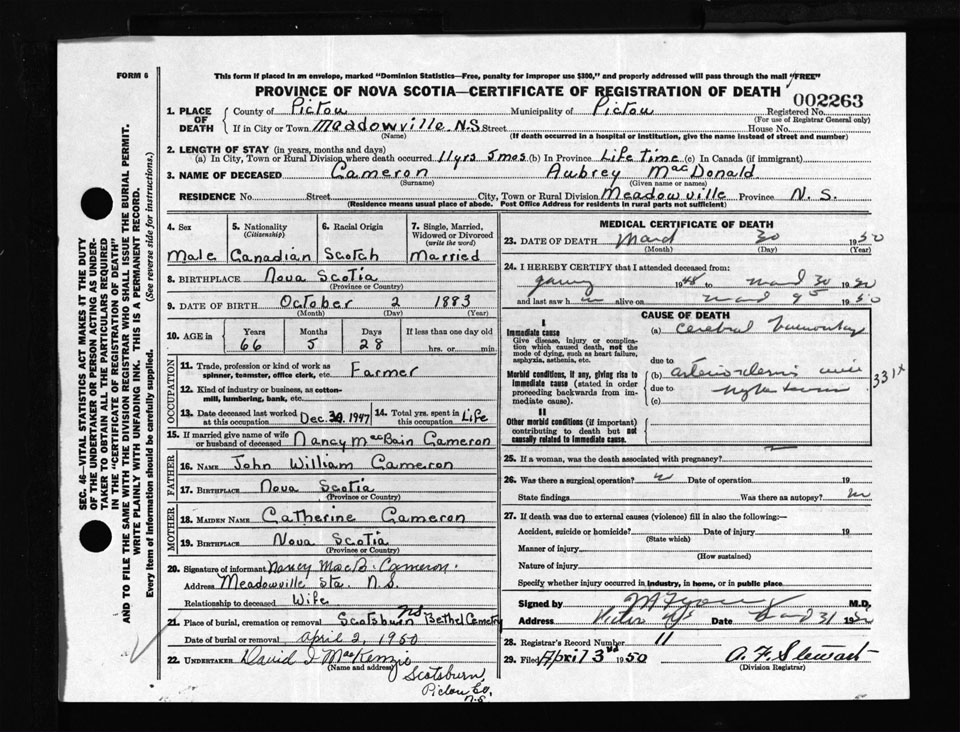 FORM 6
This form if placed in an envelope, marked "Dominion Statistics—Free, penalty for improper use $300," and properly addressed will pass through the mail "FREE"
PROVINCE OF NOVA SCOTIA—CERTIFICATE OF REGISTRATION OF DEATH
002263
1. PLACE OF DEATH County of Pictou Municipality of Pictou Registered No.
(For use of Registrar General only)
If in City or Town Meadowville N.S. Street House No.
(Name) (If death occurred in a hospital or institution, give the name instead of street and number)
2. LENGTH OF STAY (in years, months and days)
(a) In City, Town or Rural Division where death occurred 11yrs 5mos (b) In Province Life Time (c) In Canada (if immigrant)
3. NAME OF DECEASED Cameron Aubrey MacDonald
(Surname) (Given name or names)
RESIDENCE No. Street City, Town or Rural Division Meadowville Province N. S.
(Residence means usual place of abode. Post Office Address for residents in rural parts not sufficient)
4. Sex 5. Nationality (Citizenship) 6. Racial Origin 7. Single, Married, Widowed or Divorced (write the word)
Male Canadian Scotch Married
8. BIRTHPLACE Nova Scotia
(Province or Country)
9. DATE OF BIRTH October 2 1883
(Month) (Day) (Year)
10. AGE in Years Months Days If less than one day old
66 5 28 hrs. or min.
OCCUPATION
11. Trade, profession or kind of work as spinner, teamster, office clerk, etc. Farmer
12. Kind of industry or business, as cotton-mill, lumbering, bank, etc.
13. Date deceased last worked at this occupation Dec. 30, 1947 14. Total yrs. spent in this occupation Life
15. If married give name of wife or husband of deceased Nancy MacBain Cameron
FATHER
16. NAME John William Cameron
17. BIRTHPLACE Nova Scotia
(Province or Country)
MOTHER
18. MAIDEN NAME Catherine Cameron
19. BIRTHPLACE Nova Scotia
(Province or Country)
20. Signature of informant Nancy MacB. Cameron.
Address Meadowville Sta. N.S.
Relationship to deceased Wife
21. Place of burial, cremation or removal Scotsburn NS Bethel Cemetry
Date of burial or removal April 2, 1950
22. UNDERTAKER David I MacKenzie
(Name and address)
Scotsburn,
Pictou Co,
N.S.
MEDICAL CERTIFICATE OF DEATH
23. DATE OF DEATH March 30 1950
(Month) (Day) (Year)
24. I HEREBY CERTIFY that I attended deceased from:
1948 to March 30 1950
and last saw him alive on March 1950
CAUSE OF DEATH
I
Immediate cause
Give disease, injury or complication which caused death, not the mode of dying, such as heart failure, asphyxia, asthenia, etc.
(a) Cerebral Hemorrhage
due to
Morbid conditions, if any, giving rise to immediate cause (stated in order proceeding backwards from immediate cause).
(b) arteriosclerosis
due to
(c)
331x
II
Other morbid conditions (if important) contributing to death but not causally related to immediate cause.
25. If a woman, was the death associated with pregnancy?
26. Was there a surgical operation? Date of operation 19
State findings Was there an autopsy?
27. If death was due to external causes (violence) fill in also the following:—
Accident, suicide or homicide? Date of injury 19
(State which)
Manner of injury
(How sustained)
Nature of injury
Specify whether injury occurred in industry, in home, or in public place
Signed by M.D.
Address Pictou NS Date March 31 1950
28. Registrar's Record Number 11
29. Filed April 3rd 1950 A. F. Stewart
(Division Registrar)
SEC. 46—VITAL STATISTICS ACT MAKES IT THE DUTY OF THE UNDERTAKER OR PERSON ACTING AS UNDERTAKER TO OBTAIN ALL THE PARTICULARS REQUIRED IN THE "CERTIFICATE OF REGISTRATION OF DEATH"
AND TO FILE THE SAME WITH THE DIVISION REGISTRAR WHO SHALL ISSUE THE BURIAL PERMIT.
WRITE PLAINLY WITH UNFADING INK. THIS IS A PERMANENT RECORD.
Every item of Information should be carefully supplied. (See reverse side for instructions.)